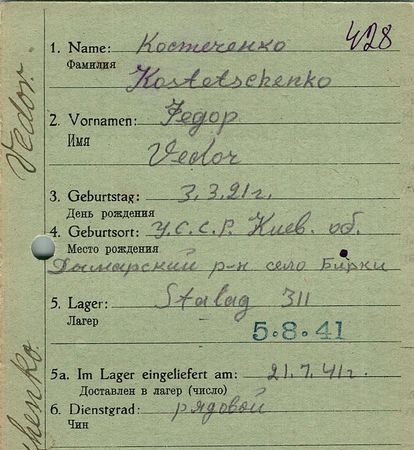 428
1. Name: Костеченко
Фамилия
Kostetschenko
2. Vornamen: Федор
Имя
Vedor
3. Geburtstag: 3.3.21г.
День рождения
4. Geburtsort: У.С.С.Р. Киев. об.
Место рождения
Дымарский р-н село Бирки
5. Lager: Stalag 311
Лагер
5.8.41
5a. Im Lager eingeliefert am: 21.7.41г.
Доставлен в лагер (число)
6. Dienstgrad: рядовой
Чин
Vedor.